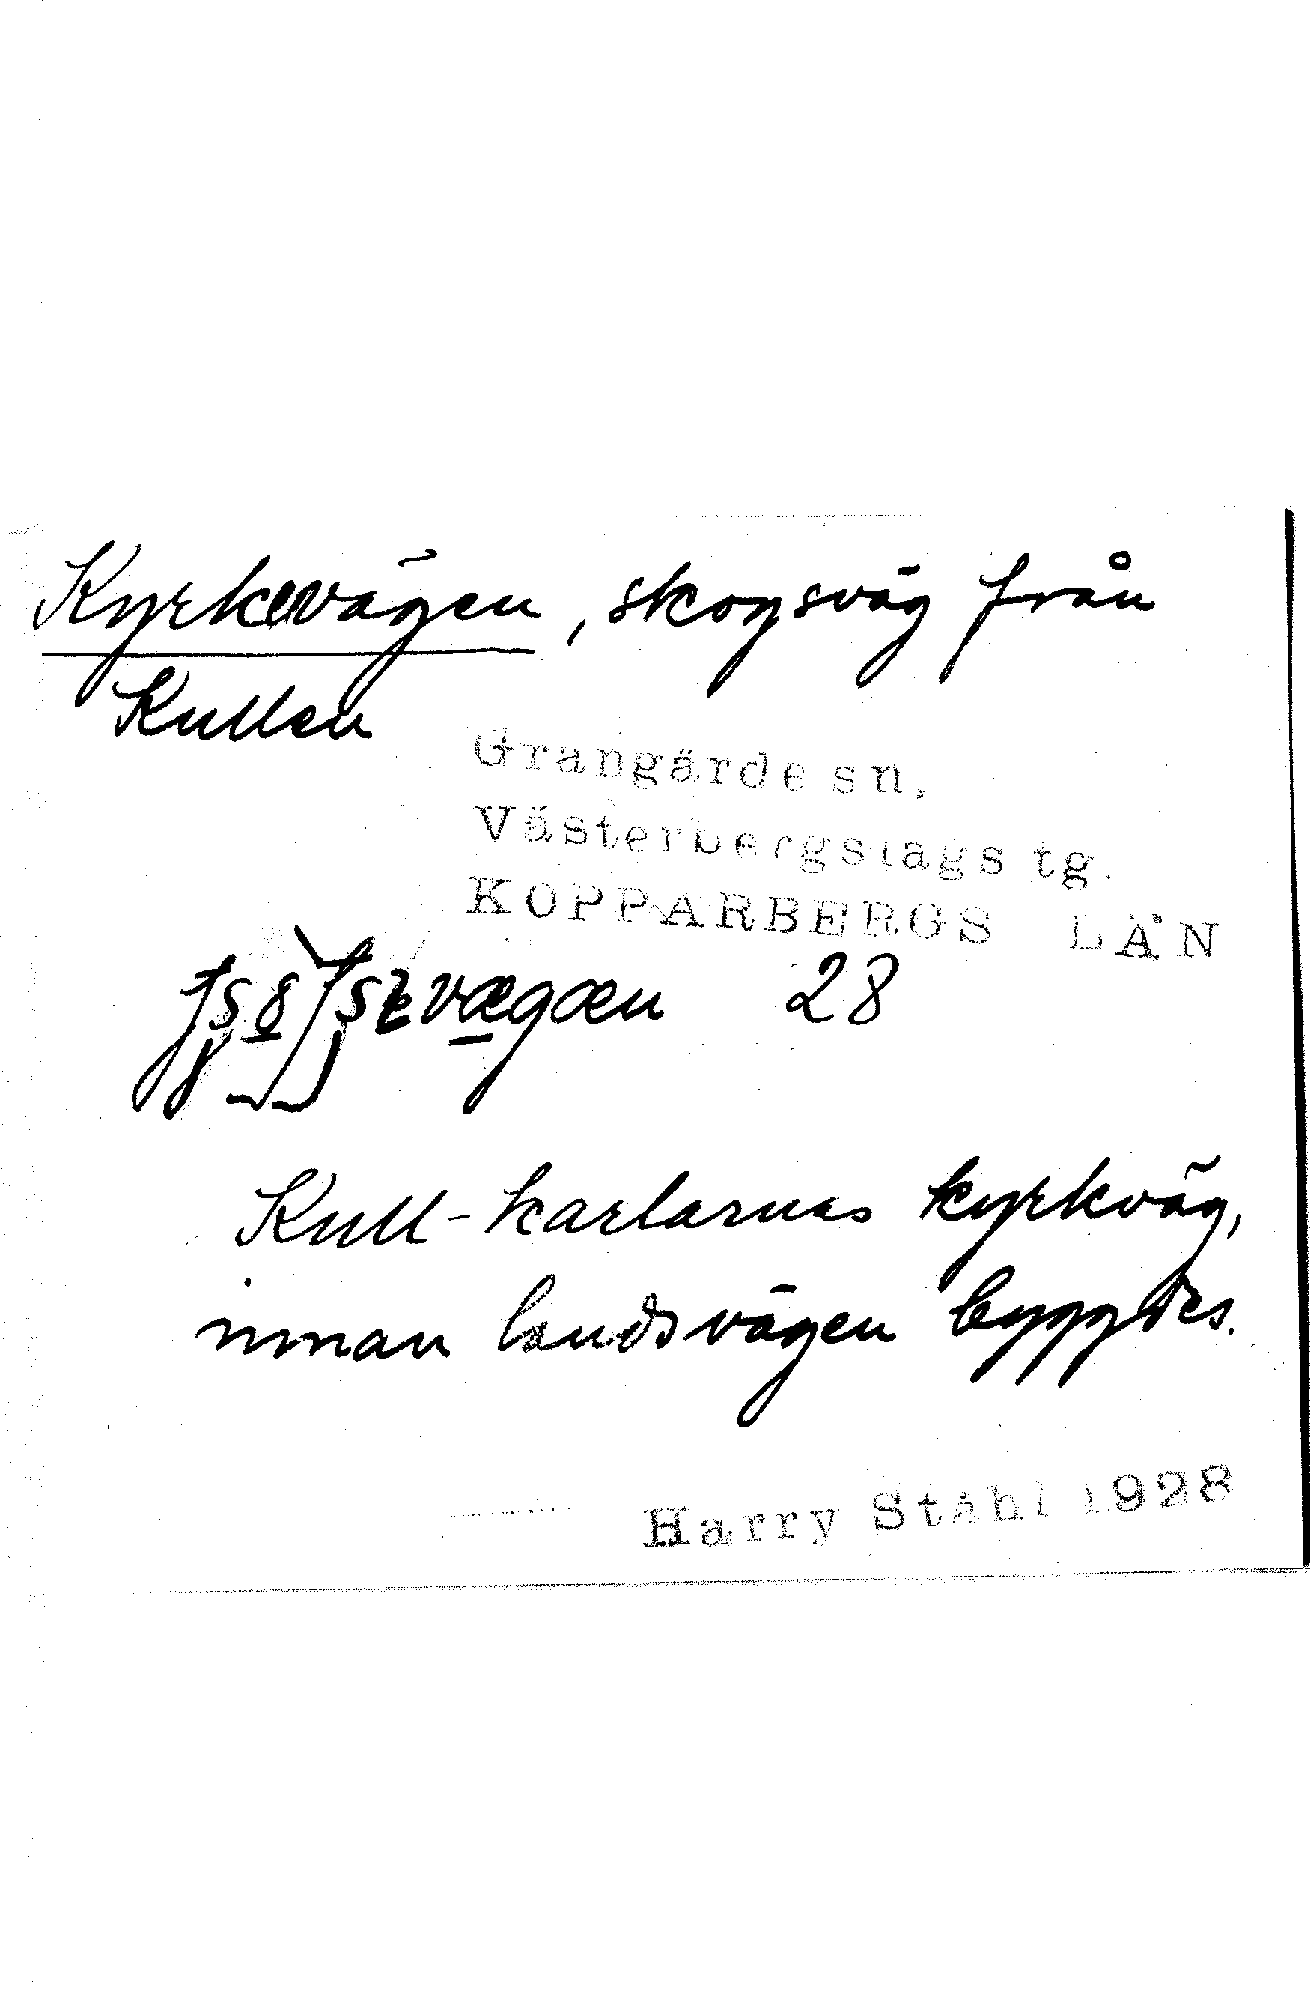 Kyrkevägen, skogsväg från
Kullen
Grangärde sn,
Västerbergslags tg.
KOPPARBERGS LÄN
28
Kull-karlarnas kyrkväg,
innan landsvägen byggdes.
Harry Ståhl 1928